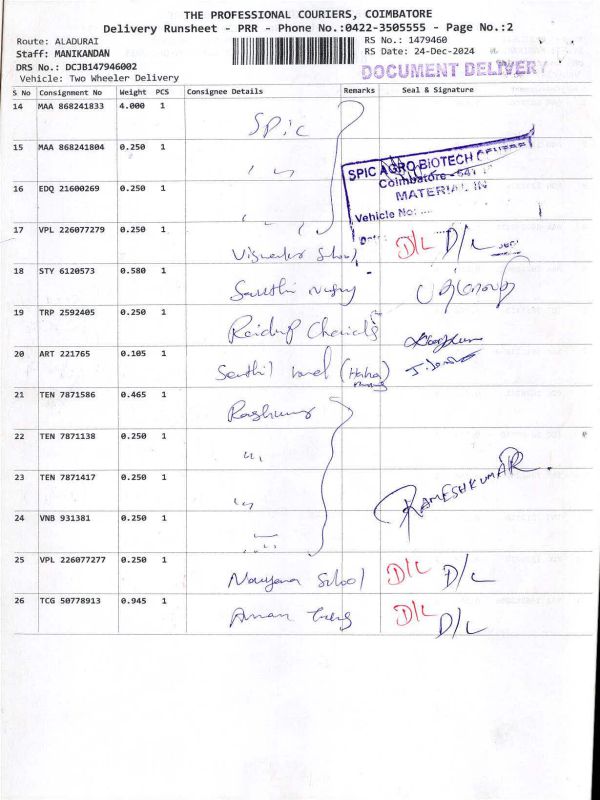 THE PROFESSIONAL COURIERS, COIMBATORE
Delivery Runsheet - PRR - Phone No.:0422-3505555 - Page No.:2
Route: ALADURAI RS No.: 1479460
Staff: MANIKANDAN RS Date: 24-Dec-2024
DRS No.: DCJB147946002 DOCUMENT DELIVERY
Vehicle: Two Wheeler Delivery
S No Consignment No Weight PCS Consignee Details Remarks Seal & Signature
14 MAA 868241833 4.000 1 Spic
15 MAA 868241804 0.250 1 " "
SPIC AGRO BIOTECH
Coimbatore - 641
MATERIAL IN
Vehicle No:
16 EDQ 21600269 0.250 1
17 VPL 226077279 0.250 1 School D/L D/L
18 STY 6120573 0.580 1
19 TRP 2592405 0.250 1
20 ART 221765 0.105 1
21 TEN 7871586 0.465 1
22 TEN 7871138 0.250 1 " "
23 TEN 7871417 0.250 1 " " RAMESHKUMAR.
24 VNB 931381 0.250 1
25 VPL 226077277 0.250 1 School D/L D/L
26 TCG 50778913 0.945 1 D/L D/L